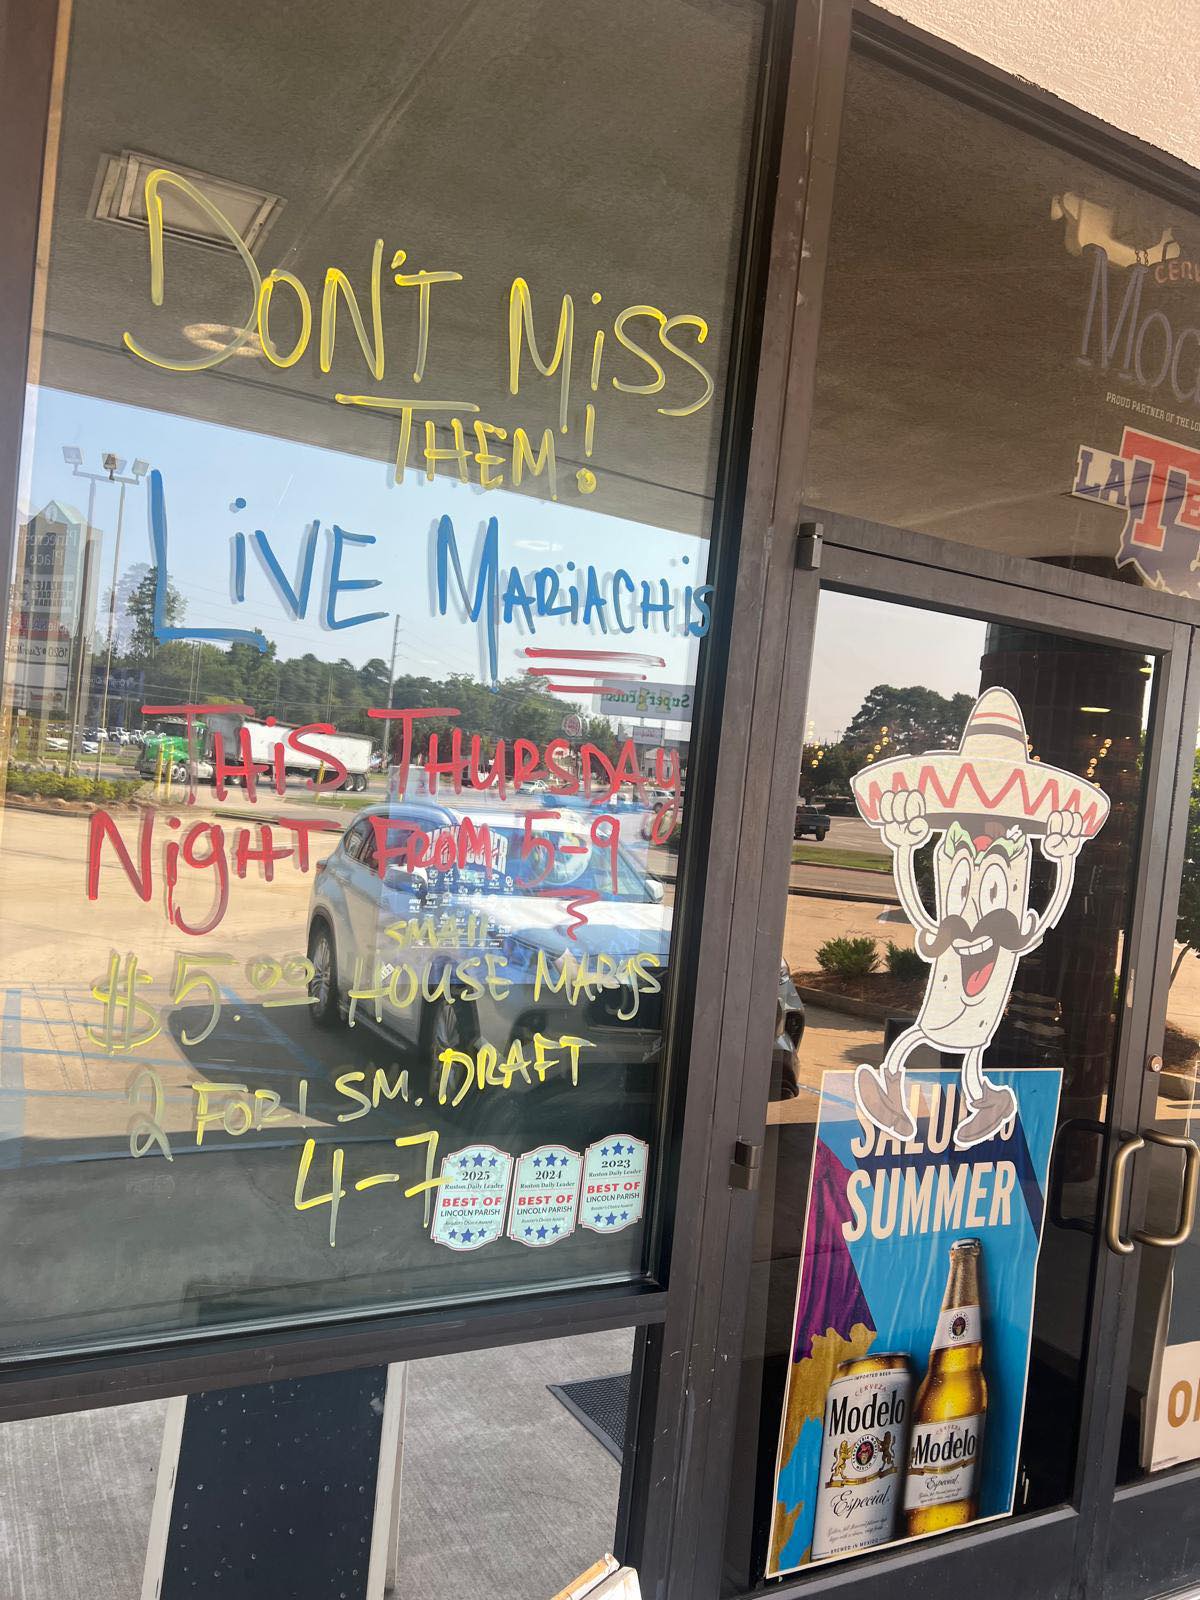 DON'T MISS
THEM!
LIVE MARIACHIS
THIS THURSDAY
NIGHT FROM 5-9
SMALL
$5.00 HOUSE MARGS
2 FOR 1 SM. DRAFT
4-7
2025
Ruston Daily Leader
BEST OF
LINCOLN PARISH
Reader's Choice Award
2024
Ruston Daily Leader
BEST OF
LINCOLN PARISH
Reader's Choice Award
2023
Ruston Daily Leader
BEST OF
LINCOLN PARISH
Reader's Choice Award
Pinecrest
Place
Super 1 Foods
PROUD PARTNER OF THE
LA
SUMMER
IMPORTED BEER
CERVEZA
Modelo
Especial
BREWED IN MEXICO
Modelo
Especial